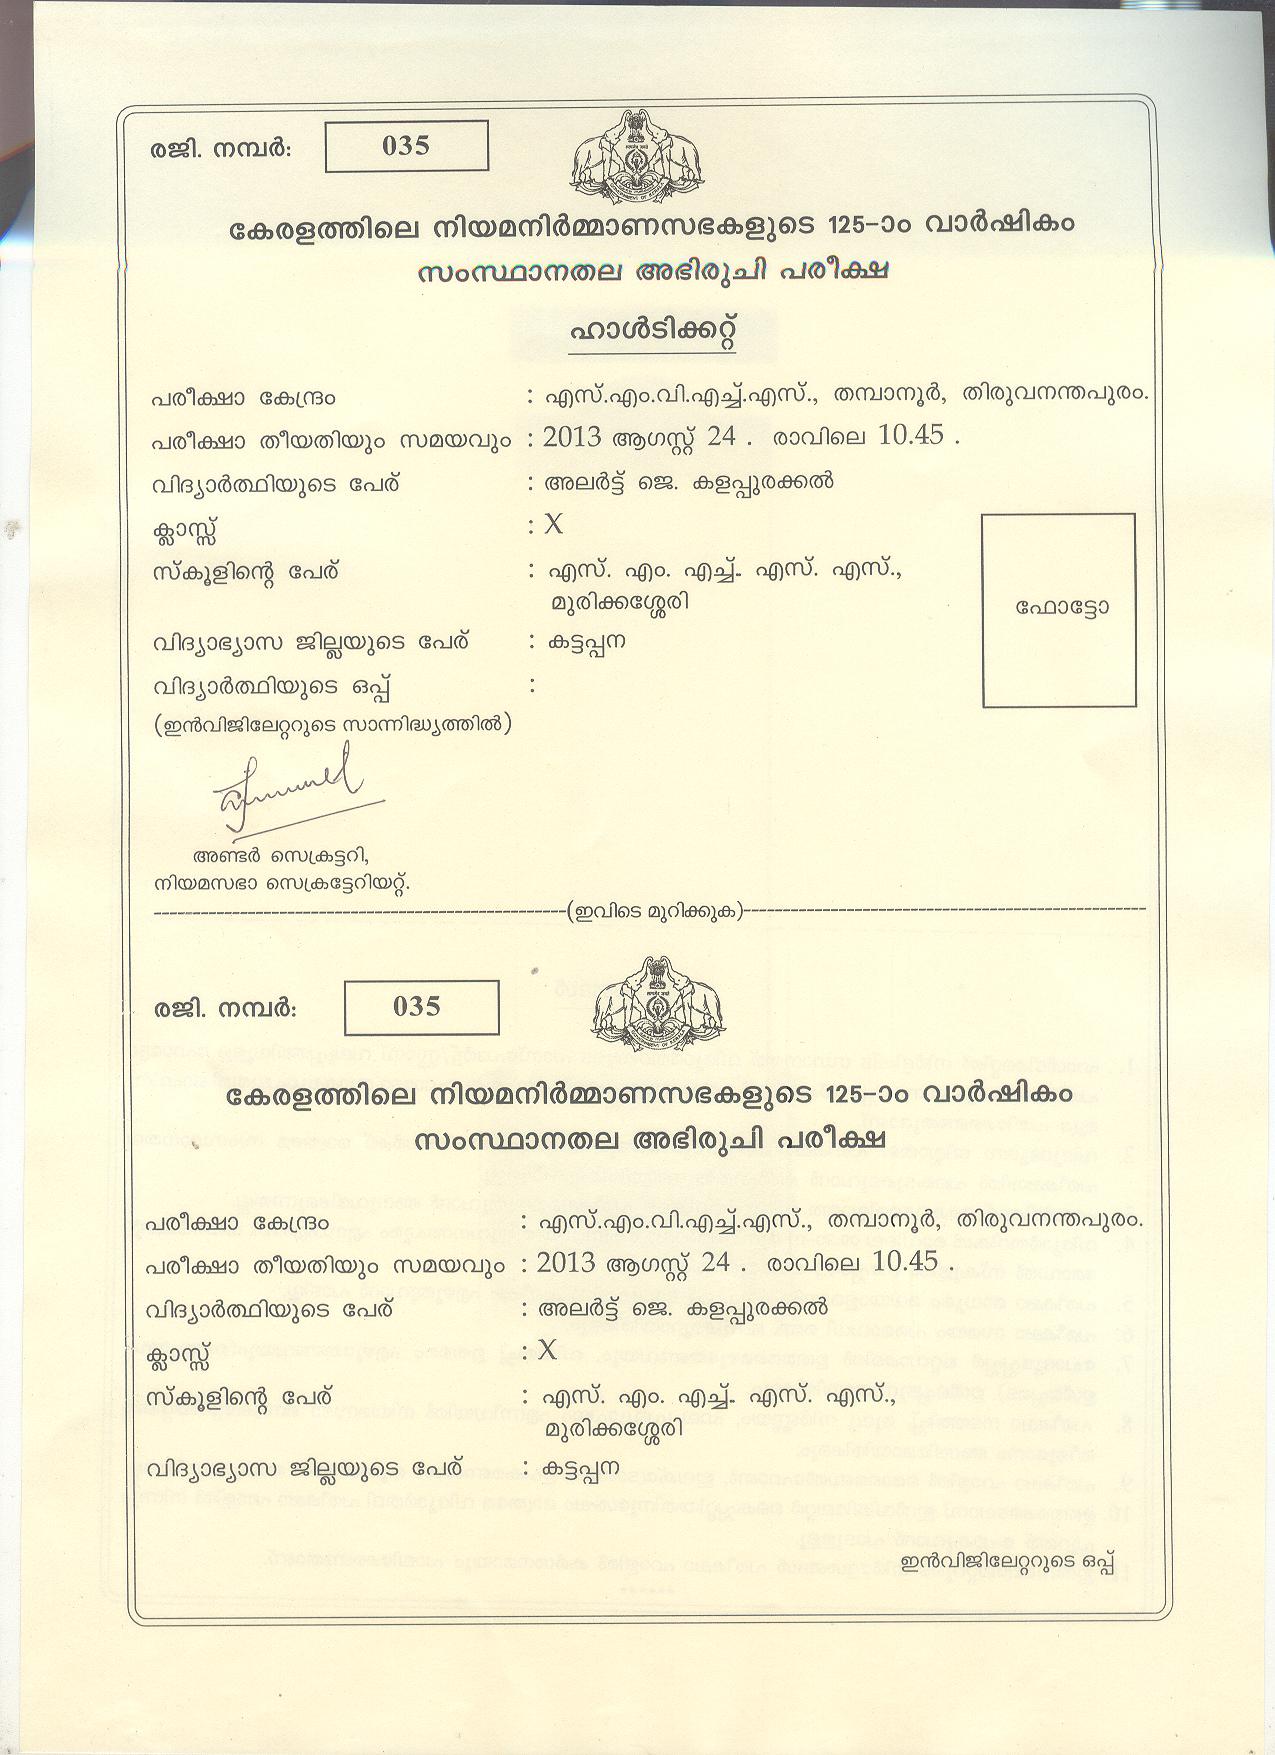 രജി. നമ്പർ: 035
കേരളത്തിലെ നിയമനിർമ്മാണസഭകളുടെ 125-ാം വാർഷികം
സംസ്ഥാനതല അഭിരുചി പരീക്ഷ
ഹാൾടിക്കറ്റ്
പരീക്ഷാ കേന്ദ്രം : എസ്.എം.വി.എച്ച്.എസ്., തമ്പാനൂർ, തിരുവനന്തപുരം.
പരീക്ഷാ തീയതിയും സമയവും : 2013 ആഗസ്റ്റ് 24 . രാവിലെ 10.45 .
വിദ്യാർത്ഥിയുടെ പേര് : അലർട്ട് ജെ. കളപ്പുരക്കൽ
ക്ലാസ്സ് : X
സ്കൂളിന്റെ പേര് : എസ്. എം. എച്ച്. എസ്. എസ്.,
മുരിക്കശ്ശേരി
ഫോട്ടോ
വിദ്യാഭ്യാസ ജില്ലയുടെ പേര് : കട്ടപ്പന
വിദ്യാർത്ഥിയുടെ ഒപ്പ് :
(ഇൻവിജിലേറ്ററുടെ സാന്നിദ്ധ്യത്തിൽ)
അണ്ടർ സെക്രട്ടറി,
നിയമസഭാ സെക്രട്ടേറിയറ്റ്.
(ഇവിടെ മുറിക്കുക)
രജി. നമ്പർ: 035
കേരളത്തിലെ നിയമനിർമ്മാണസഭകളുടെ 125-ാം വാർഷികം
സംസ്ഥാനതല അഭിരുചി പരീക്ഷ
പരീക്ഷാ കേന്ദ്രം : എസ്.എം.വി.എച്ച്.എസ്., തമ്പാനൂർ, തിരുവനന്തപുരം.
പരീക്ഷാ തീയതിയും സമയവും : 2013 ആഗസ്റ്റ് 24 . രാവിലെ 10.45 .
വിദ്യാർത്ഥിയുടെ പേര് : അലർട്ട് ജെ. കളപ്പുരക്കൽ
ക്ലാസ്സ് : X
സ്കൂളിന്റെ പേര് : എസ്. എം. എച്ച്. എസ്. എസ്.,
മുരിക്കശ്ശേരി
വിദ്യാഭ്യാസ ജില്ലയുടെ പേര് : കട്ടപ്പന
ഇൻവിജിലേറ്ററുടെ ഒപ്പ്